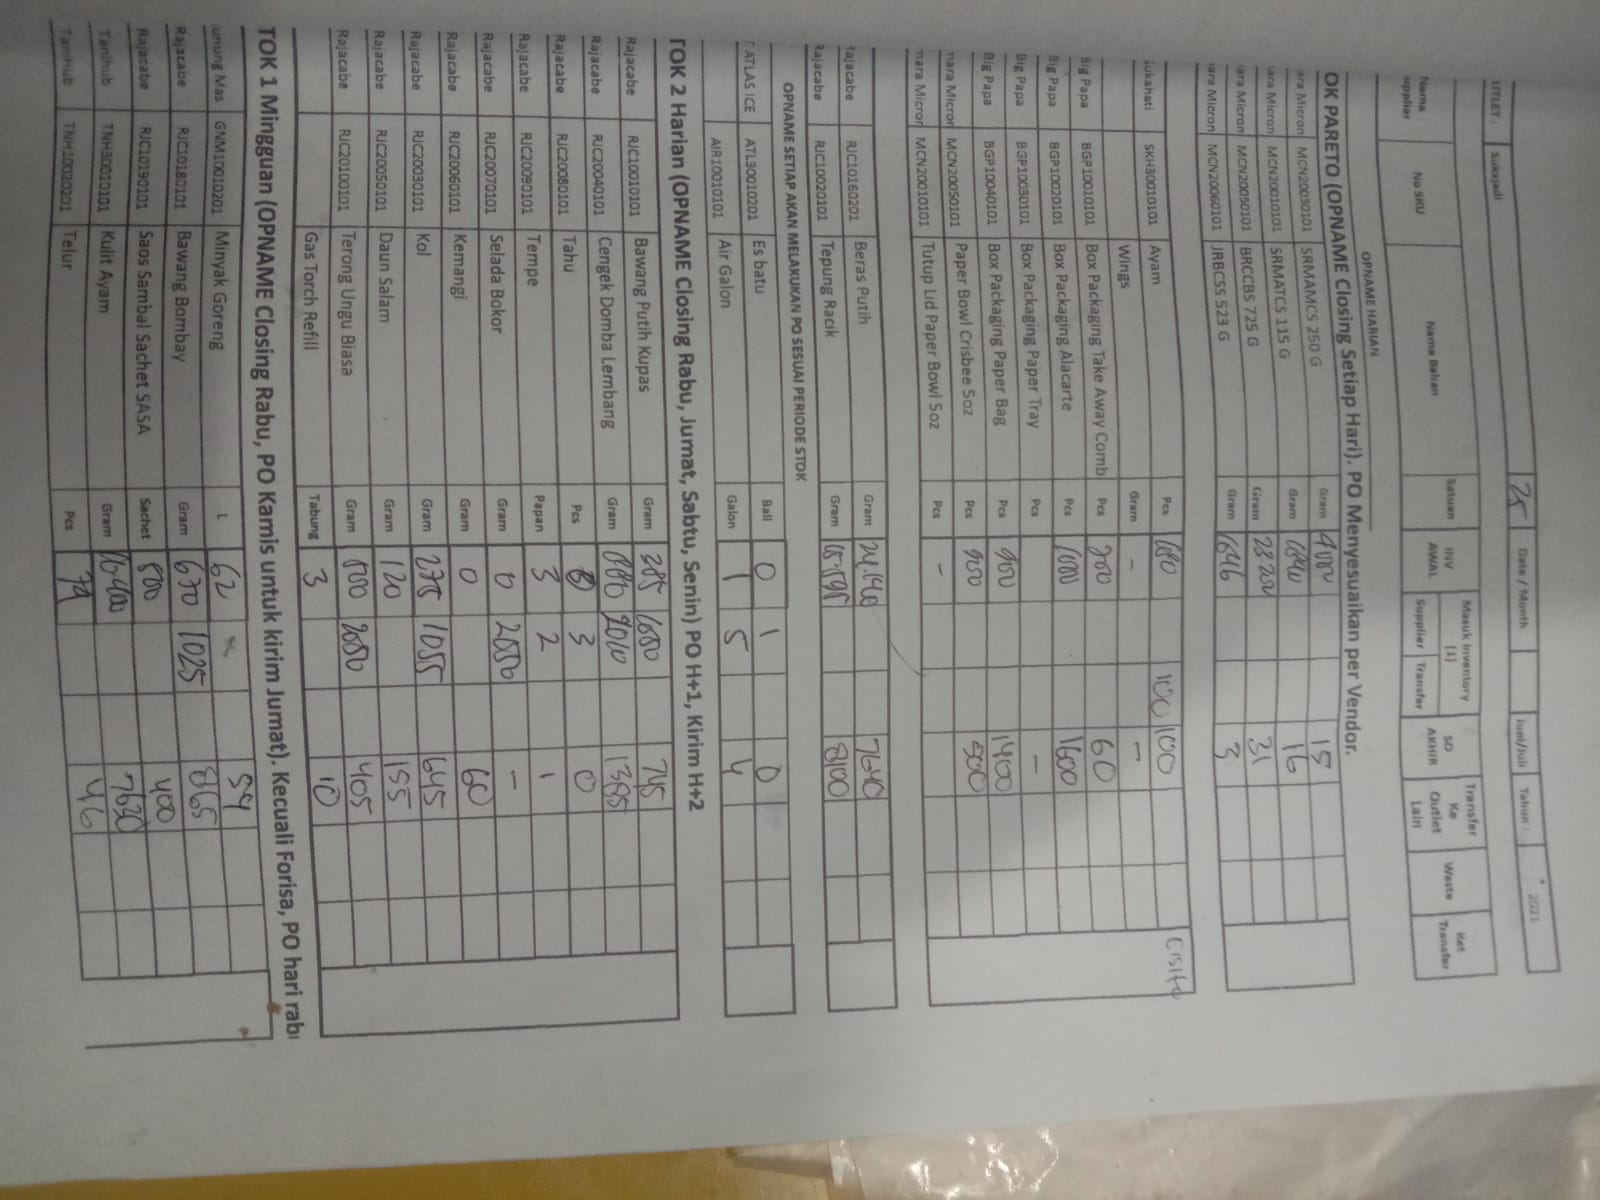 UTLET : Sukajadi 25 Date / Month Juni/Juli Tahun : 2021
OPNAME HARIAN
Nama Supplier No SKU Nama Bahan Satuan INV AWAL Masuk Inventory (1) Supplier Transfer SO AKHIR Transfer Ke Outlet Lain Waste Ket Transfer
OK PARETO (OPNAME Closing Setiap Hari). PO Menyesuaikan per Vendor.
ara Micron MCN20030101 SRMAMCS 250 G Gram 15
ara Micron MCN20010101 SRMATCS 115 G Gram 16
ara Micron MCN20050101 BRCCBS 725 G Gram 31
ara Micron MCN20060101 JRBCSS 523 G Gram 1646 3
Sukahati SKH30010101 Ayam Pcs 100 100
Wings Gram - -
Big Papa BGP10010101 Box Packaging Take Away Comb Pcs 200 60
Big Papa BGP10020101 Box Packaging Alacarte Pcs 1000 1600
Big Papa BGP10030101 Box Packaging Paper Tray Pcs -
Big Papa BGP10040101 Box Packaging Paper Bag Pcs 900 1400
nara Micron MCN20050101 Paper Bowl Crisbee 5oz Pcs 900 500
nara Micron MCN20010101 Tutup Lid Paper Bowl 5oz Pcs -
Rajacabe RJC10160201 Beras Putih Gram 24.140 7640
Rajacabe RJC10020101 Tepung Racik Gram 8100
OPNAME SETIAP AKAN MELAKUKAN PO SESUAI PERIODE STOK
ATLAS ICE ATL30010201 Es batu Ball 0 1 0
AIR10010101 Air Galon Galon 1 5 4
TOK 2 Harian (OPNAME Closing Rabu, Jumat, Sabtu, Senin) PO H+1, Kirim H+2
Rajacabe RJC10010101 Bawang Putih Kupas Gram 285 745
Rajacabe RJC20040101 Cengek Domba Lembang Gram 2010
Rajacabe RJC20080101 Tahu Pcs 3 0
Rajacabe RJC20090101 Tempe Papan 3 2 1
Rajacabe RJC20070101 Selada Bokor Gram 0 2050 -
Rajacabe RJC20060101 Kemangi Gram 0 60
Rajacabe RJC20030101 Kol Gram 275 1055 645
Rajacabe RJC20050101 Daun Salam Gram 120 155
Rajacabe RJC20100101 Terong Ungu Biasa Gram 800 2050 405
Gas Torch Refill Tabung 3 10
TOK 1 Mingguan (OPNAME Closing Rabu, PO Kamis untuk kirim Jumat). Kecuali Forisa, PO hari rabu
unung Mas GNM10010201 Minyak Goreng L 62 54
Rajacabe RJC10180101 Bawang Bombay Gram 670 1025 865
Rajacabe RJC10190101 Saos Sambal Sachet SASA Sachet 500 400
TaniHub TNH30010101 Kulit Ayam Gram 16.400 7630
TaniHub TNH10020201 Telur Pcs 79 46